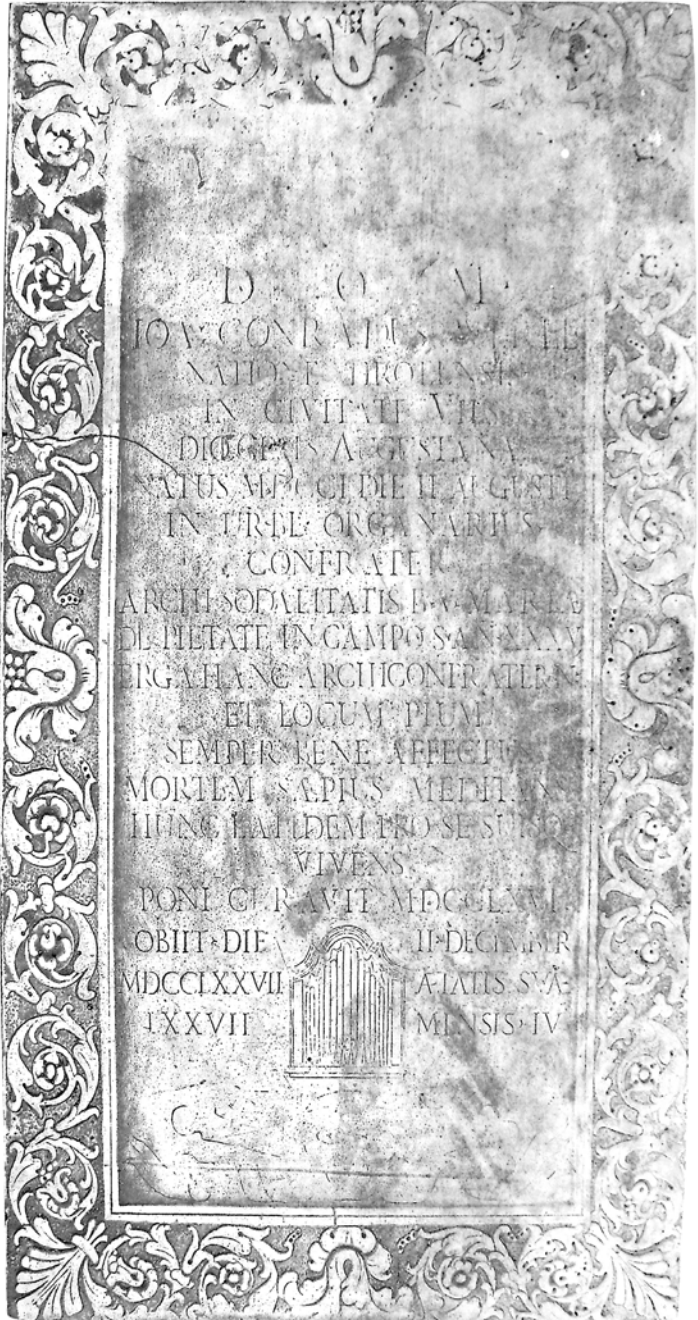 D O M
IOAN CONRADUS
NATIONE TIROLENSIS
IN CIVITATE VILS
DIŒCESIS AUGUSTANÆ
NATUS MDCCI DIE II AUGUSTI
IN URBE ORGANARIUS
CONFRATER
ARCHISODALITATIS B·V·MARIÆ
DE PIETATE IN CAMPO SAN
ERGA HANC ARCHICONFRATERN
ET LOCUM PIUM
SEMPER BENE AFFECTUS
MORTEM SÆPIUS MEDITANS
HUNC LAPIDEM PRO SE SUISQ
VIVENS
PONI CURAVIT MDCCLXVI
OBIIT·DIE II·DECEMBER
MDCCLXXVII ÆTATIS SVÆ
LXXVII MENSIS·IV